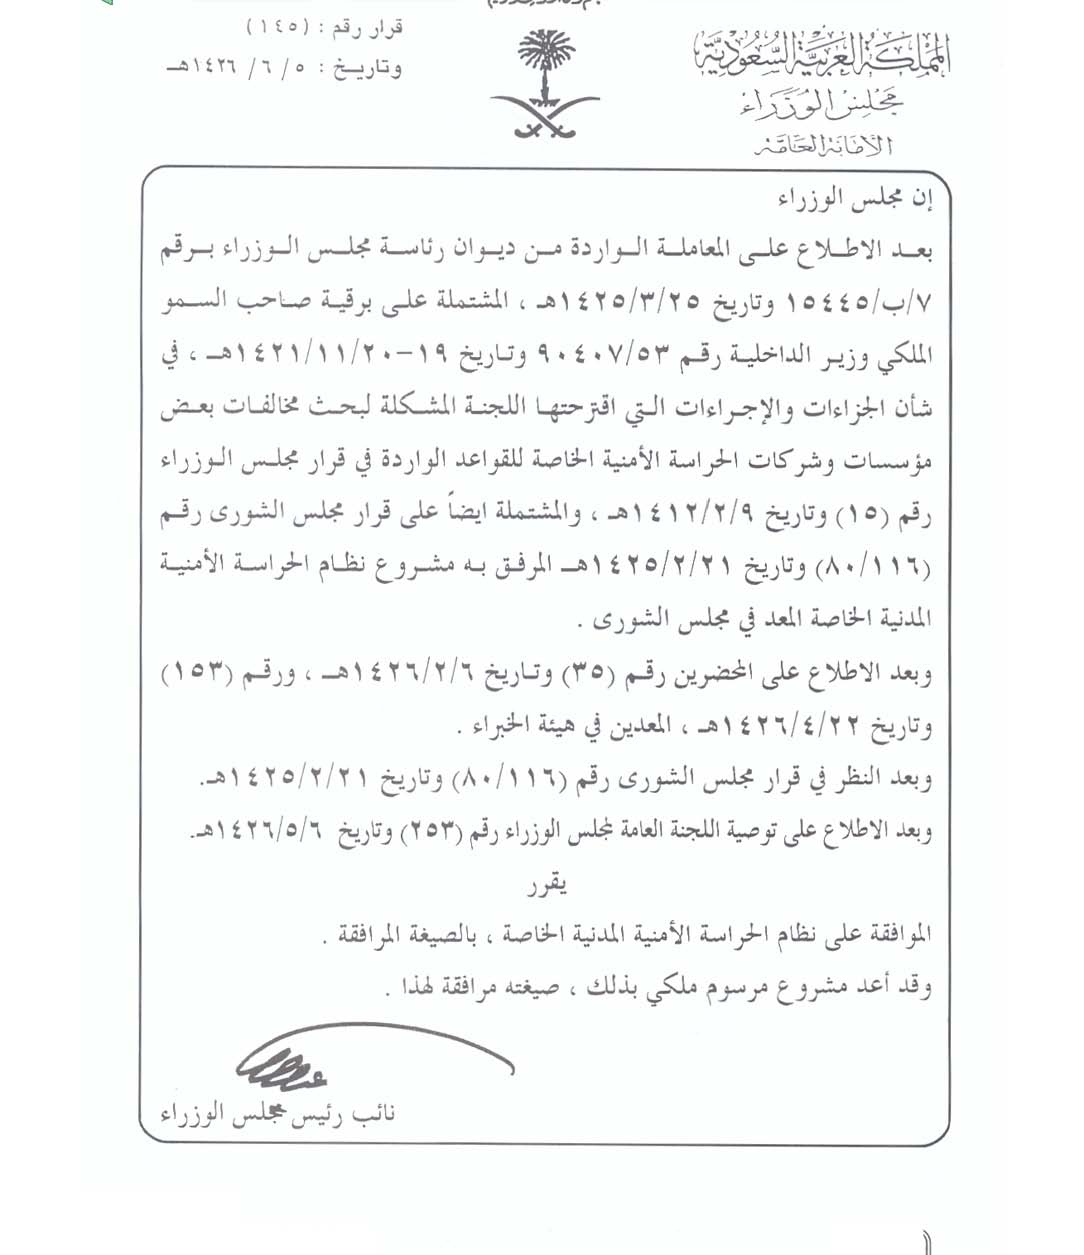 قرار رقم : (١٤٥)
وتاريخ : ٥ / ٦ / ١٤٢٦هـ
المملكة العربية السعودية
مجلس الوزراء
الأمانة العامة
إن مجلس الوزراء
بعد الاطلاع على المعاملة الواردة من ديوان رئاسة مجلس الوزراء برقم
٧/ب/١٥٤٤٥ وتاريخ ١٤٢٥/٣/٢٥هـ ، المشتملة على برقية صاحب السمو
الملكي وزير الداخلية رقم ٩٠٤٠٧/٥٣ وتاريخ ١٩-١٤٢١/١١/٢٠هـ ، في
شأن الجزاءات والإجراءات التي اقترحتها اللجنة المشكلة لبحث مخالفات بعض
مؤسسات وشركات الحراسة الأمنية الخاصة للقواعد الواردة في قرار مجلس الوزراء
رقم (١٥) وتاريخ ١٤١٢/٢/٩هـ ، والمشتملة ايضاً على قرار مجلس الشورى رقم
(٨٠/١١٦) وتاريخ ١٤٢٥/٢/٢١هـ المرفق به مشروع نظام الحراسة الأمنية
المدنية الخاصة المعد في مجلس الشورى .
وبعد الاطلاع على المحضرين رقم (٣٥) وتاريخ ١٤٢٦/٢/٦هـ ، ورقم (١٥٣)
وتاريخ ١٤٢٦/٤/٢٢هـ ، المعدين في هيئة الخبراء .
وبعد النظر في قرار مجلس الشورى رقم (٨٠/١١٦) وتاريخ ١٤٢٥/٢/٢١هـ.
وبعد الاطلاع على توصية اللجنة العامة لمجلس الوزراء رقم (٢٥٣) وتاريخ ١٤٢٦/٥/٦هـ.
يقرر
الموافقة على نظام الحراسة الأمنية المدنية الخاصة ، بالصيغة المرافقة .
وقد أعد مشروع مرسوم ملكي بذلك ، صيغته مرافقة لهذا .
نائب رئيس مجلس الوزراء